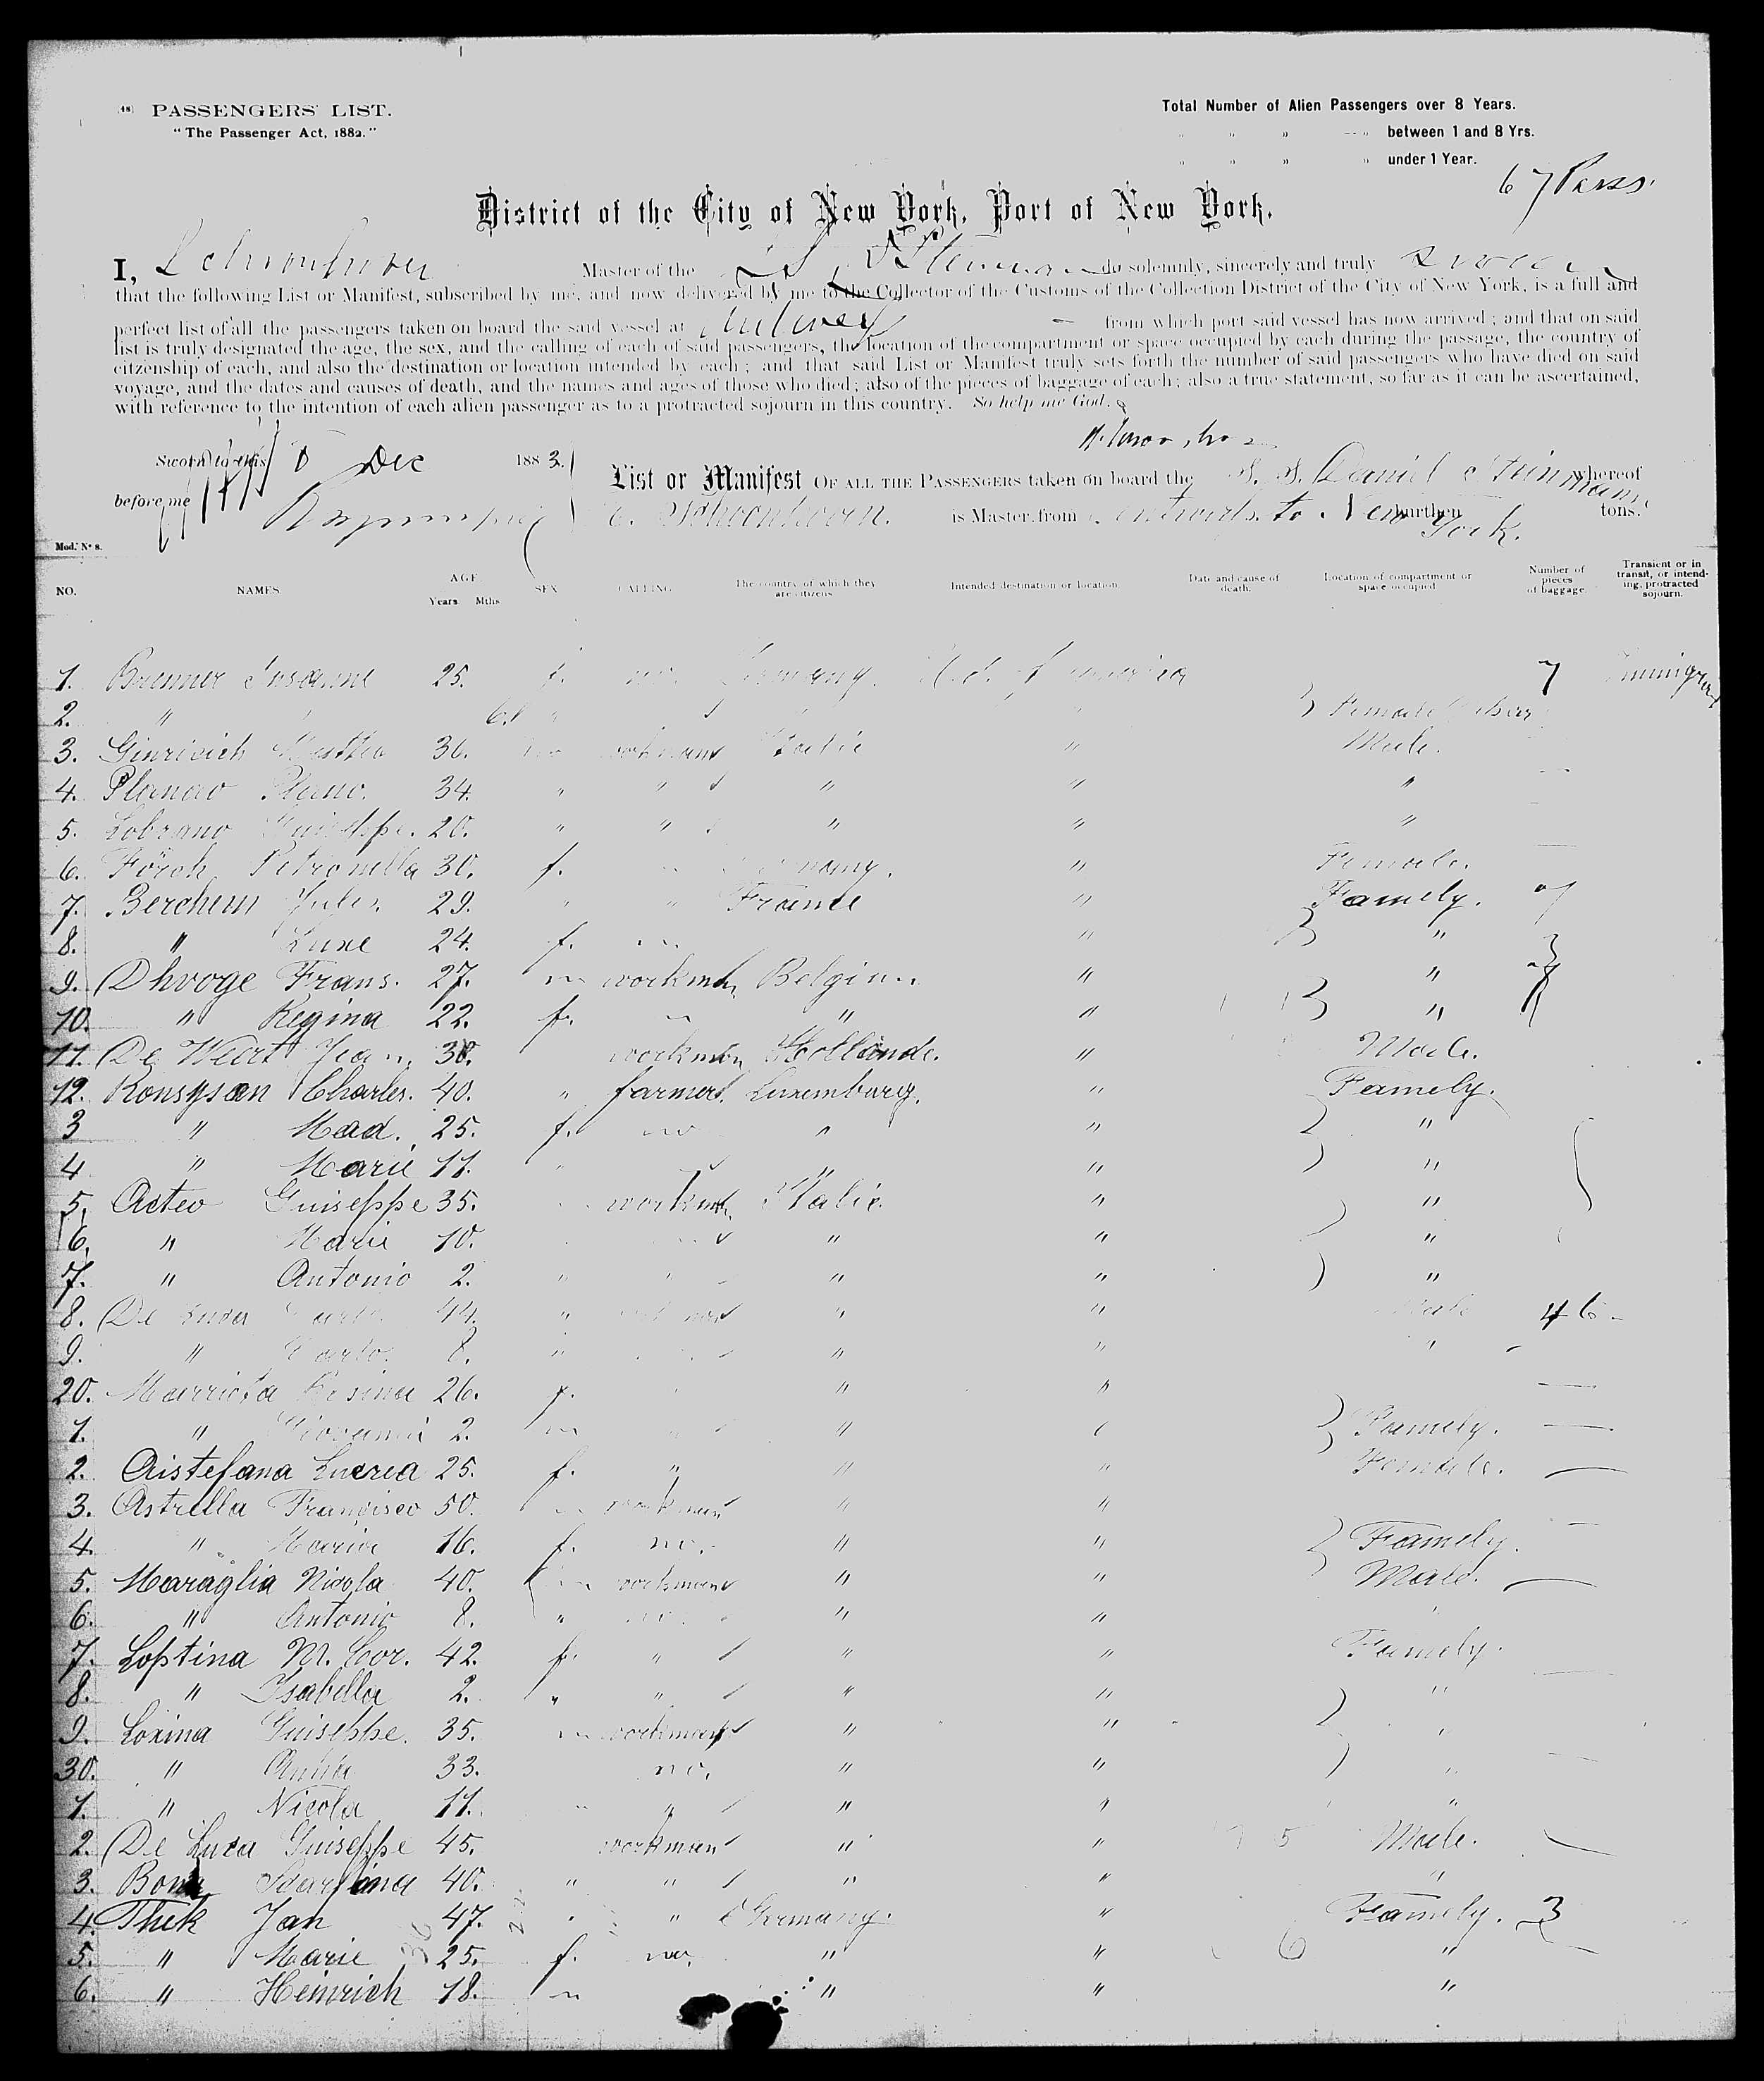 (18) PASSENGERS' LIST.
"The Passenger Act, 1882."
Total Number of Alien Passengers over 8 Years.
" " " " between 1 and 8 Yrs.
" " " " under 1 Year.
67 Pass.
District of the City of New York, Port of New York.
I, Schoonhoven Master of the SS D Steinmann do solemnly, sincerely and truly swear
that the following List or Manifest, subscribed by me, and now delivered by me to the Collector of the Customs of the Collection District of the City of New York, is a full and
perfect list of all the passengers taken on board the said vessel at Antwerp from which port said vessel has now arrived; and that on said
list is truly designated the age, the sex, and the calling of each of said passengers, the location of the compartment or space occupied by each during the passage, the country of
citzenship of each, and also the destination or location intended by each; and that said List or Manifest truly sets forth the number of said passengers who have died on said
voyage, and the dates and causes of death, and the names and ages of those who died; also of the pieces of baggage of each; also a true statement, so far as it can be ascertained,
with reference to the intention of each alien passenger as to a protracted sojourn in this country. So help me God.
Sworn to this 8 Dec 1883.
before me
List or Manifest OF ALL THE PASSENGERS taken on board the S. S. Daniel Steinmann whereof
C. Schoonhoven. is Master, from Antwerp to New York. burthen tons.
Mod. Nº 8.
NO. NAMES. AGE. Years Mths SEX CALLING The country of which they are citizens. Intended destination or location. Date and cause of death. Location of compartment or space occupied. Number of pieces of baggage. Transient or in transit, or intending, protracted sojourn.
1. Brenner Susanne 25. f. no. Germany. U.S. of America 7 Immigrant
2. " 6. " " Female
3. Ginricich 36. workmans Italie " Male.
4. Planao Plano. 34. " " " " "
5. Lobrano Guiseppe. 20. " " " " "
6. Förch Petronella 30. f. Germany. " Female.
7. Berchem Jules. 29. " " France " Famely.
8. " Luxe 24. f. " "
9. Dhvoge Frans. 27. m workman Belgium " "
10. " Regina 22. f. " " "
11. De Weert Jean. 38. workman Hollande. " Male.
12. Ronsysan Charles. 40. " farmers. Luxemburg. " Famely.
3 " Mad. 25. f. no " " "
4 " Marie 11. " " " "
5. Acteo Guiseppe 35. workman Italie. " "
6. " Marie 10. " " "
7. " Antonio 2. " " " " "
8. De Luca 44. " " " Male 46
9. " Carlo. 8. " " " "
20. Marriota Rosina 26. f. " "
1. " Giovanni 2. m " " Famely.
2. Aistefana Lucrea 25. f. " " " Female.
3. Astrella Francisco 50. m workman " "
4. " Maria 16. f. no. " " Famely.
5. Maraglia Nicola 40. m workmans " " Male.
6. " Antonio 8. " " " "
7. Loptina M. Cor. 42. f. " " " Famely.
8. " Isabella 2. " " " " "
9. Loxina Guiseppe. 35. m workmans " " "
30. " Anna 33. no. " " "
1. " Nicola 11. " " " " "
2. De Luca Guiseppe 45. workman " " 5 Male.
3. 40. " " " " "
4. Thek Jan 47. " " Germany. " Famely. 3
5. " Marie 25. f. no. " " 6 "
6. " Heinrich 18. m " " "